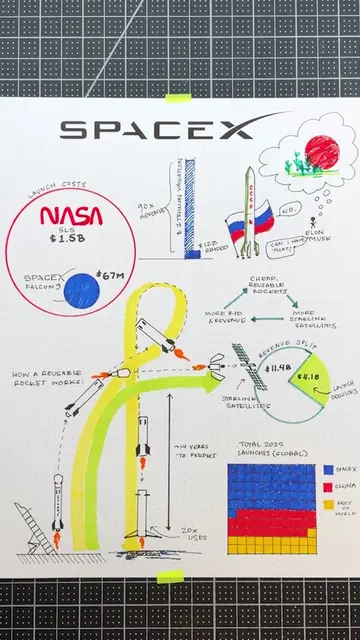 SPACEX
LAUNCH COSTS
NASA
SLS
$1.5B
SPACEX
FALCON 9
$67M
90X
REVENUE
1 TRILLION VALUATION
$12B
RAISED
CCCP
NO.
CAN I HAVE
THAT?
ELON
MUSK
CHEAP,
REUSABLE
ROCKETS
MORE R&D
& REVENUE
MORE
STARLINK
SATELLITES
HOW A REUSABLE
ROCKET WORKS:
REVENUE SPLIT
$11.4B
$4.1B
LAUNCH
PROVIDERS
STARLINK
SATELLITES
YEARS
TO PERFECT
20X
USES
TOTAL 2025
LAUNCHES (GLOBAL)
SPACEX
CHINA
REST
OF
WORLD